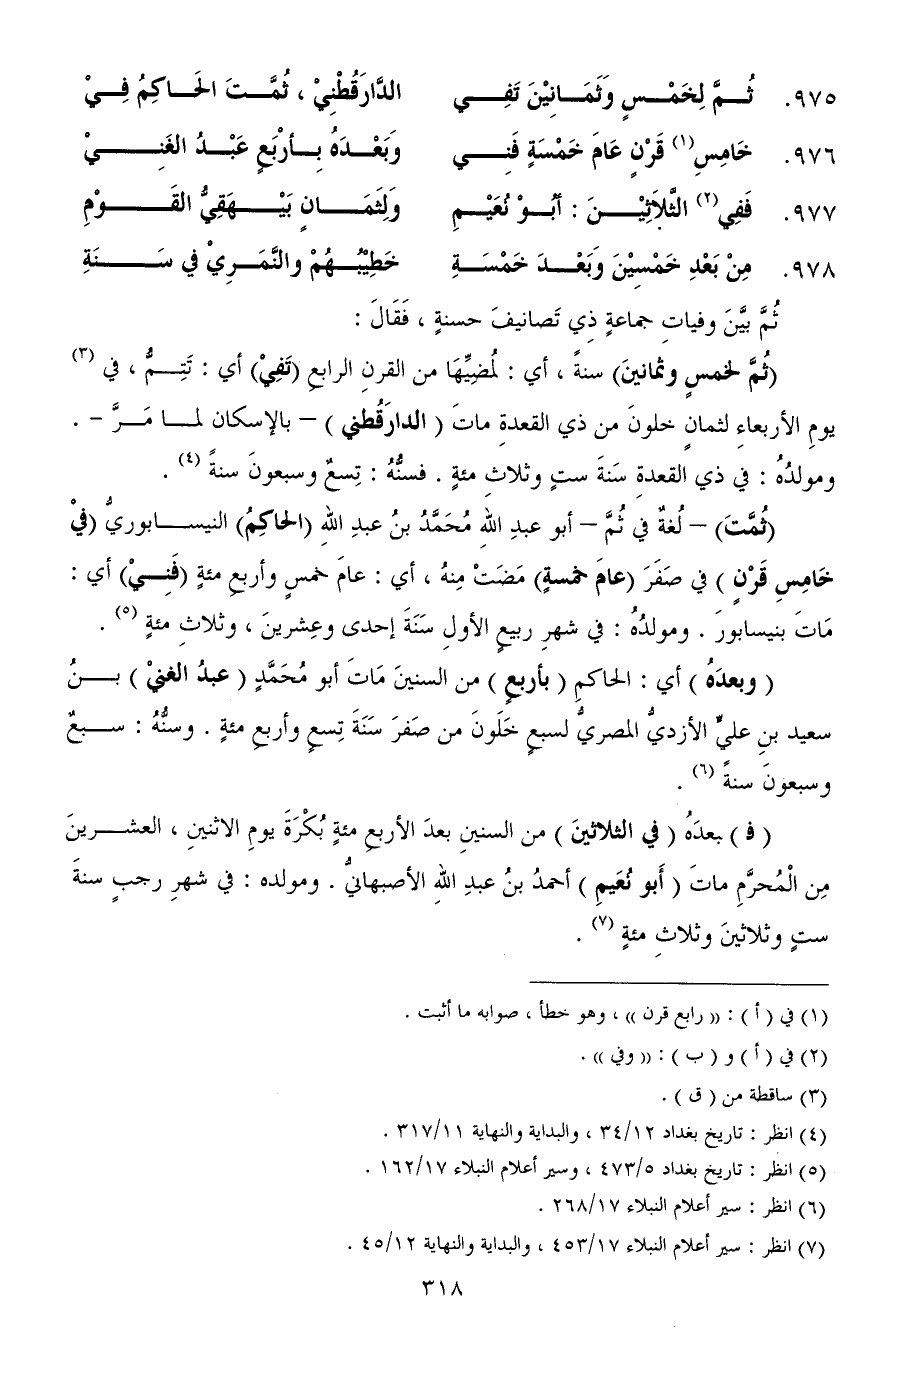 ٩٧٥. ثُمَّ لِخَمْسٍ وَثَمَانِيْنَ تَفِي الدَّارَقُطْنِيْ ، ثُمَّتَ الحَاكِمُ فِيْ
٩٧٦. خَامِسِ(١) قَرْنٍ عَامَ خَمْسَةٍ فَنِي وَبَعْدَهُ بِأَرْبَعٍ عَبْدُ الغَنِيْ
٩٧٧. فَفِي(٢) الثَّلاَثِيْنَ : أَبُوْ نُعَيْمِ وَلِثَمَانٍ بَيْهَقِيُّ القَوْمِ
٩٧٨. مِنْ بَعْدِ خَمْسِيْنَ وَبَعْدَ خَمْسَةِ خَطِيْبُهُمْ والنَّمَرِيْ في سَنَةِ
ثُمَّ بيَّنَ وفياتِ جماعةٍ ذي تَصانيفَ حسنةٍ ، فَقَالَ :
(ثُمَّ لخمسٍ وثمانين) سنةً ، أي : لمُضيِّهَا من القرن الرابعِ (تَفِيْ) أي : تَتِمُّ ، في (٣)
يومِ الأربعاءِ لثمانٍ خلونَ من ذي القعدةِ ماتَ ( الدارَقُطني ) – بالإسكان لما مَرَّ – .
ومولدُهُ : في ذي القعدةِ سَنةَ ستٍ وثلاثِ مئةٍ . فسنُّهُ : تِسعٌ وسبعونَ سنةً (٤) .
(ثُمَّتَ) – لُغةٌ في ثُمَّ – أبو عبدِ اللهِ مُحَمَّدُ بنُ عبدِ اللهِ (الحاكِمُ) النيسابوريُّ (فيْ
خامِسِ قَرْنٍ ) في صَفَرَ (عامَ خمسةٍ) مَضَتْ مِنهُ ، أي : عامَ خمسٍ وأربعِ مئةٍ (فَنِيْ) أي :
مَاتَ بنيسابورَ . ومولدُهُ : في شهرِ ربيعٍ الأولِ سَنَةَ إحدى وعِشرينَ ، وثلاثِ مئةٍ (٥) .
( وبعدَهُ ) أي : الحاكمِ ( بأربعٍ ) من السنينَ مَاتَ أبو مُحَمَّدٍ ( عبدُ الغنيْ ) بنُ
سعيد بنِ عليٍّ الأزديُّ المصريُّ لسبعٍ خَلَونَ من صفرَ سَنَةَ تِسعٍ وأربعِ مئةٍ . وسنُّهُ : سبعٌ
وسبعونَ سنةً (٦) .
( فـ ) بعدَهُ ( في الثلاثينَ ) من السنين بعدَ الأربعِ مئةٍ بُكْرَةَ يومِ الاثنينِ ، العشرينَ
مِن الْمُحرَّمِ ماتَ ( أَبو نُعَيمِ ) أحمدُ بنُ عبدِ اللهِ الأصبهانيُّ . ومولده : في شهرِ رجبٍ سنةَ
ستٍ وثلاثينَ وثلاثِ مئةٍ (٧) .
(١) في ( أ ) : (( رابع قرن )) ، وهو خطأ ، صوابه ما أثبت .
(٢) في ( أ ) و ( ب ) : (( وفي )) .
(٣) ساقطة من ( ق ) .
(٤) انظر : تاريخ بغداد ٣٤/١٢ ، والبداية والنهاية ٣١٧/١١ .
(٥) انظر : تاريخ بغداد ٤٧٣/٥ ، وسير أعلام النبلاء ١٦٢/١٧ .
(٦) انظر : سير أعلام النبلاء ٢٦٨/١٧ .
(٧) انظر : سير أعلام النبلاء ٤٥٣/١٧ ، والبداية والنهاية ٤٥/١٢ .
٣١٨